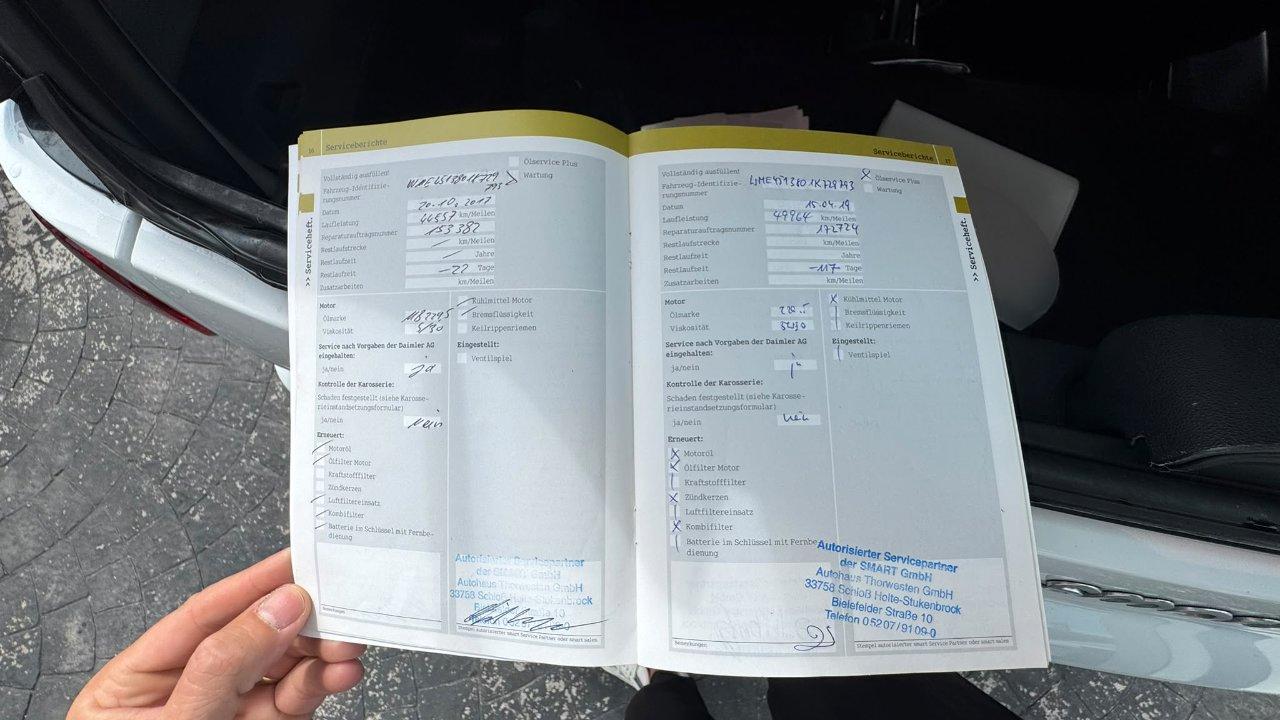 16 Serviceberichte
Vollständig ausfüllen!
Ölservice Plus
Fahrzeug-Identifizie-
rungsnummer
793
Wartung
Datum 20.10.2017
Laufleistung km/Meilen
Reparaturauftragsnummer 153382
Restlaufstrecke km/Meilen
Restlaufzeit Jahre
Restlaufzeit -22 Tage
Zusatzarbeiten km/Meilen
Motor
Ölmarke
Viskosität 5/30
Service nach Vorgaben der Daimler AG
eingehalten:
ja/nein ja
Kontrolle der Karosserie:
Schaden festgestellt (siehe Karosse-
rieinstandsetzungsformular)
ja/nein Nein
Erneuert:
Motoröl
Ölfilter Motor
Kraftstofffilter
Zündkerzen
Luftfiltereinsatz
Kombifilter
Batterie im Schlüssel mit Fernbe-
dienung
Kühlmittel Motor
Bremsflüssigkeit
Keilrippenriemen
Eingestellt:
Ventilspiel
Autorisierter Servicepartner
der SMART GmbH
Autohaus Thorwesten GmbH
33758 Schloß Holte-Stukenbrock
Bemerkungen
Stempel autorisierter smart Service Partner oder smart salen
>> Serviceheft.
Serviceberichte 17
Vollständig ausfüllen!
X Ölservice Plus
Fahrzeug-Identifizie-
rungsnummer
Wartung
Datum 15.04.19
Laufleistung 49964 km/Meilen
Reparaturauftragsnummer 172724
Restlaufstrecke km/Meilen
Restlaufzeit Jahre
Restlaufzeit -117 Tage
Zusatzarbeiten km/Meilen
Motor
Ölmarke 229.5
Viskosität 5W30
Service nach Vorgaben der Daimler AG
eingehalten:
ja/nein
Kontrolle der Karosserie:
Schaden festgestellt (siehe Karosse-
rieinstandsetzungsformular)
ja/nein nein
Erneuert:
X Motoröl
X Ölfilter Motor
Kraftstofffilter
X Zündkerzen
Luftfiltereinsatz
X Kombifilter
Batterie im Schlüssel mit Fernbe-
dienung
X Kühlmittel Motor
Bremsflüssigkeit
Keilrippenriemen
Eingestellt:
Ventilspiel
Autorisierter Servicepartner
der SMART GmbH
Autohaus Thorwesten GmbH
33758 Schloß Holte-Stukenbrock
Bielefelder Straße 10
Telefon 05207/9109-0
Bemerkungen
Stempel autorisierter smart Service Partner oder smart salen
>> Serviceheft.